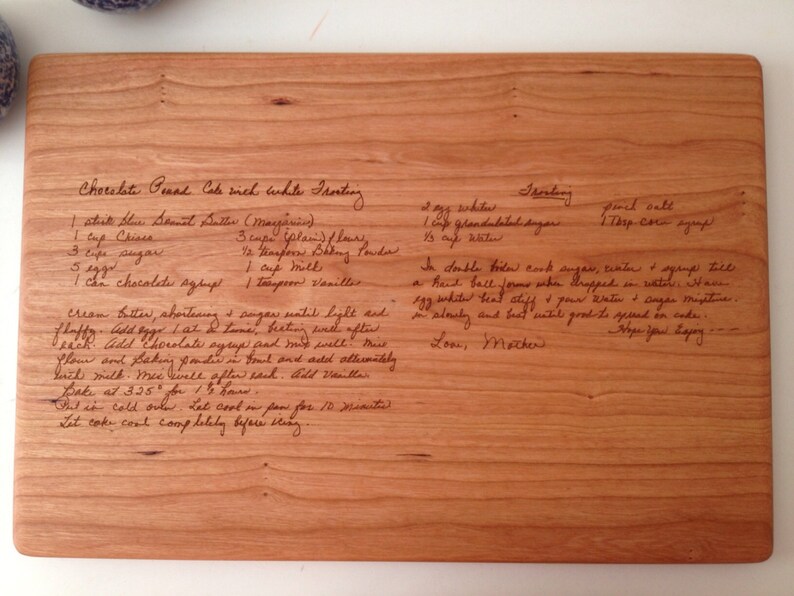 Chocolate Pound Cake with White Frosting
1 stick Blue Bonnet Butter (Margarine)
1 cup Crisco
3 cups (plain) flour
3 cups sugar
1/2 teaspoon Baking Powder
5 eggs
1 cup Milk
1 can chocolate syrup
1 teaspoon Vanilla
cream butter, shortening & sugar until light and
fluffy. Add eggs 1 at a time, beating well after
each. Add chocolate syrup and mix well. Mix
flour and Baking powder in bowl and add alternately
with milk. Mix well after each. Add Vanilla.
Bake at 325° for 1 1/2 hours.
Put in cold oven. Let cool in pan for 10 minutes
Let cake cool completely before icing.
Frosting
2 egg whites
pinch salt
1 cup grandulated sugar
1 Tbsp corn syrup
1/3 cup Water
In double boiler cook sugar, water & syrup till
a hard ball forms when dropped in water. Have
egg white beat stiff & pour Water & sugar mixture
in slowly and beat until good to spread on cake.
Hope You Enjoy ----
Love, Mother